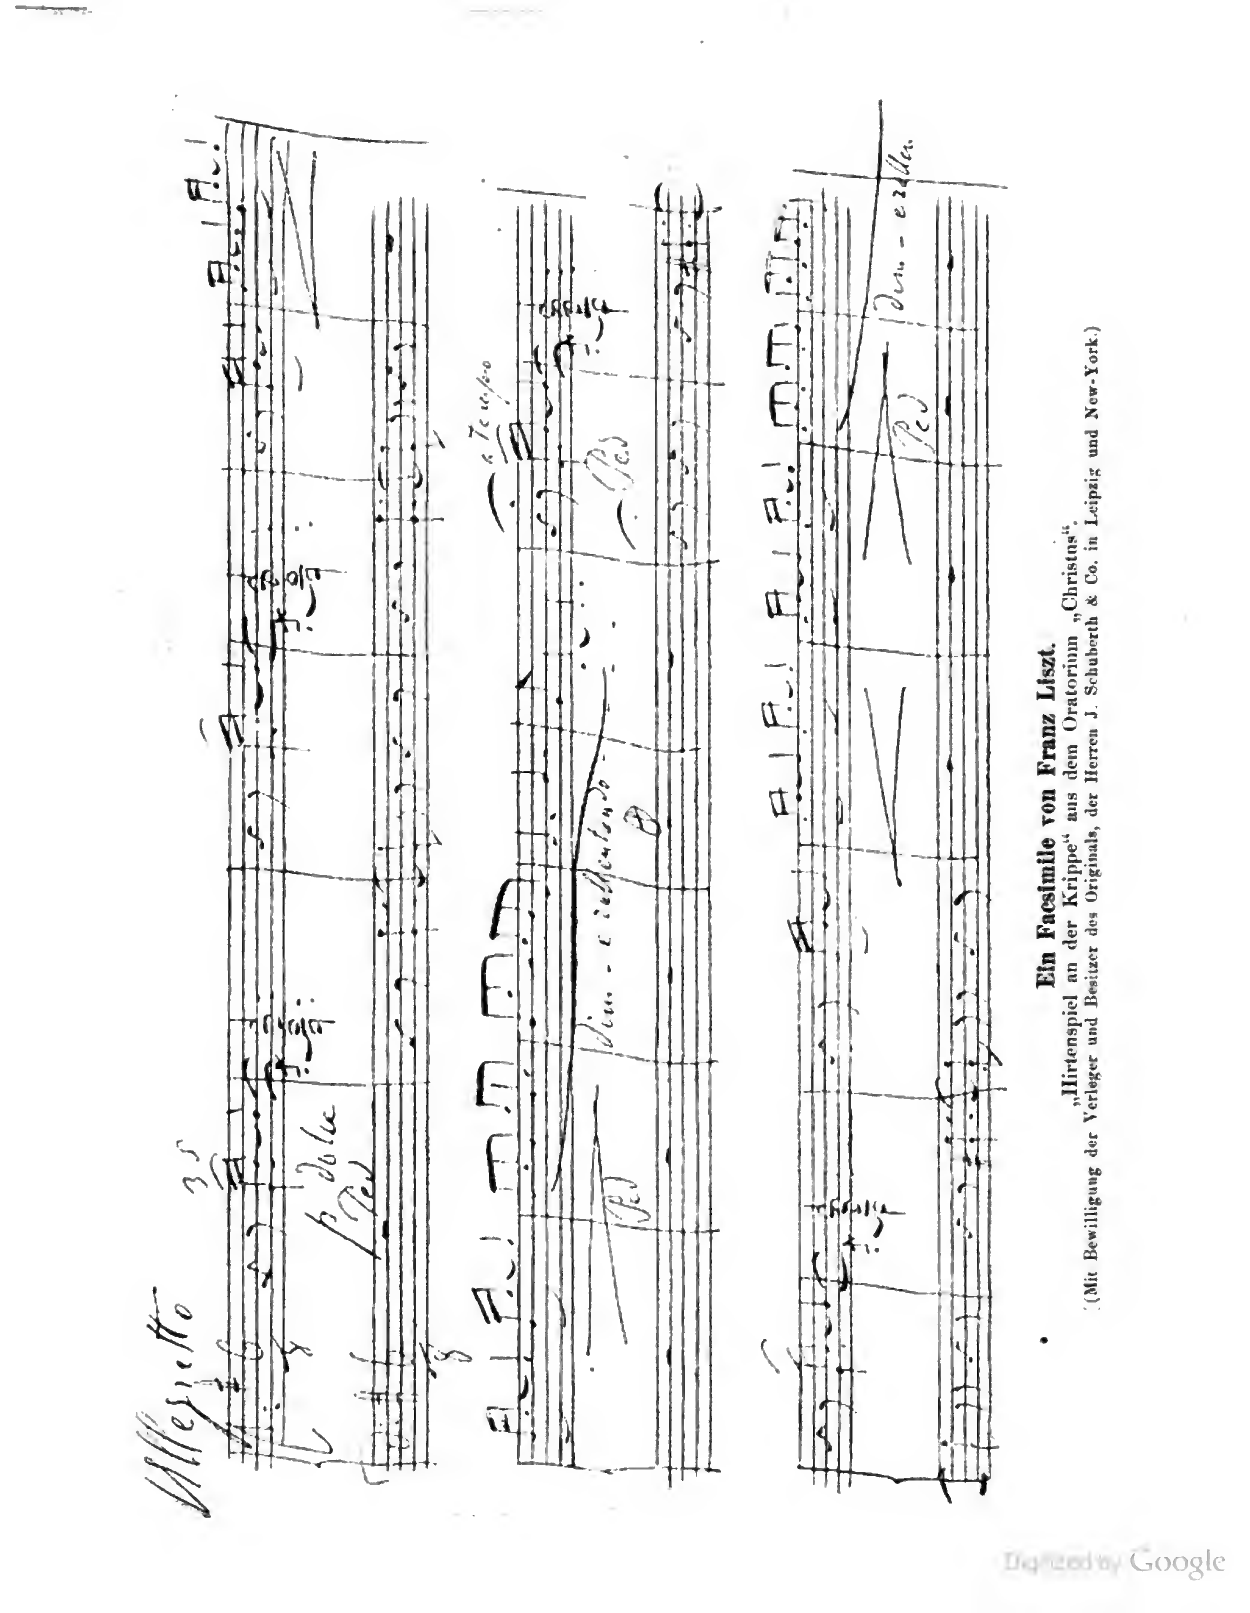 Allegretto
3 5
6
8
8
p dolce
Ped
a Tempo
Ped
dim. - e rallentando -
Ped
dim. - e rallen.
Ped
Ein Facsimile von Franz Liszt.
„Hirtenspiel an der Krippe“ aus dem Oratorium „Christus“.
(Mit Bewilligung der Verleger und Besitzer des Originals, der Herren J. Schuberth & Co. in Leipzig und New-York.)
Digitized by Google